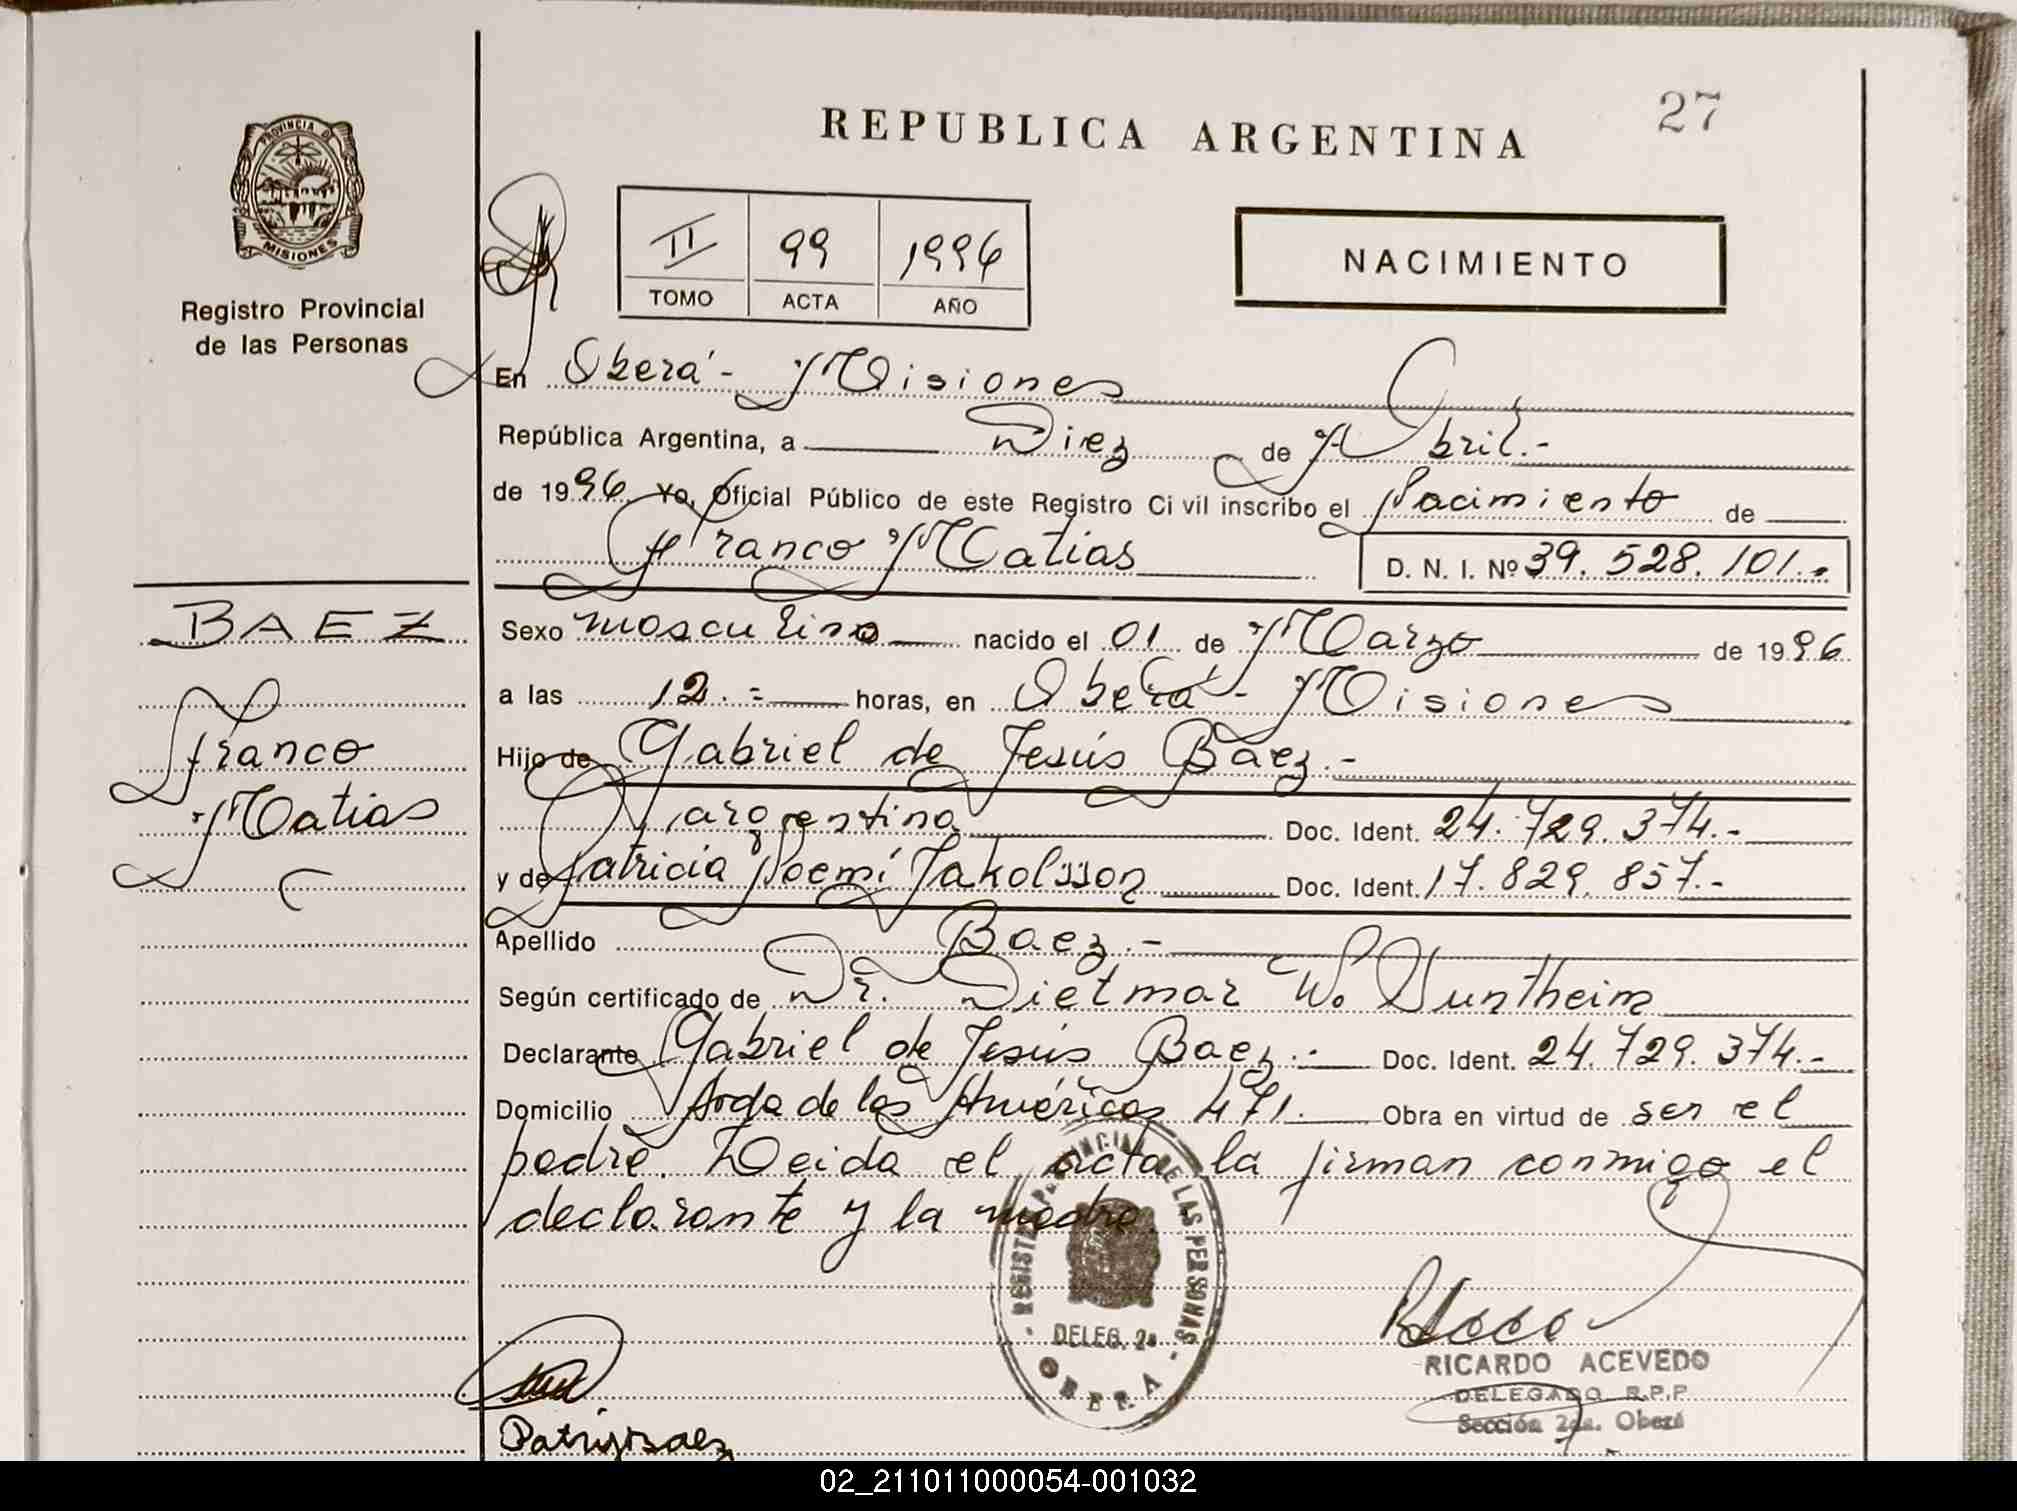 27
REPUBLICA ARGENTINA
PROVINCIA DE
MISIONES
Registro Provincial
de las Personas
II 99 1996
TOMO ACTA AÑO
NACIMIENTO
En Oberá - Misiones
República Argentina, a Diez de Abril.-
de 1996 Yo, Oficial Público de este Registro Civil inscribo el Nacimiento de
Franco Matias D. N. I. Nº 39.528.101.-
BAEZ
Franco
Matias
Sexo masculino nacido el 01 de Marzo de 1996
a las 12.= horas, en Oberá - Misiones
Hijo de Gabriel de Jesús Baez.-
argentino Doc. Ident. 24.729.374.-
y de Patricia Noemí Jakolsson Doc. Ident. 17.829.857.-
Apellido Baez.-
Según certificado de Dr. Dietmar W. Suntheim
Declarante Gabriel de Jesús Baez.- Doc. Ident. 24.729.374.-
Domicilio Avda de las Américas 471. Obra en virtud de ser el
padre. Leida el acta la firman conmigo el
declarante y la madre.
REGISTRO PROVINCIAL DE LAS PERSONAS
DELEG. 2a
OBERA
RICARDO ACEVEDO
DELEGADO R.P.P.
Sección 2da. Oberá
02_211011000054-001032